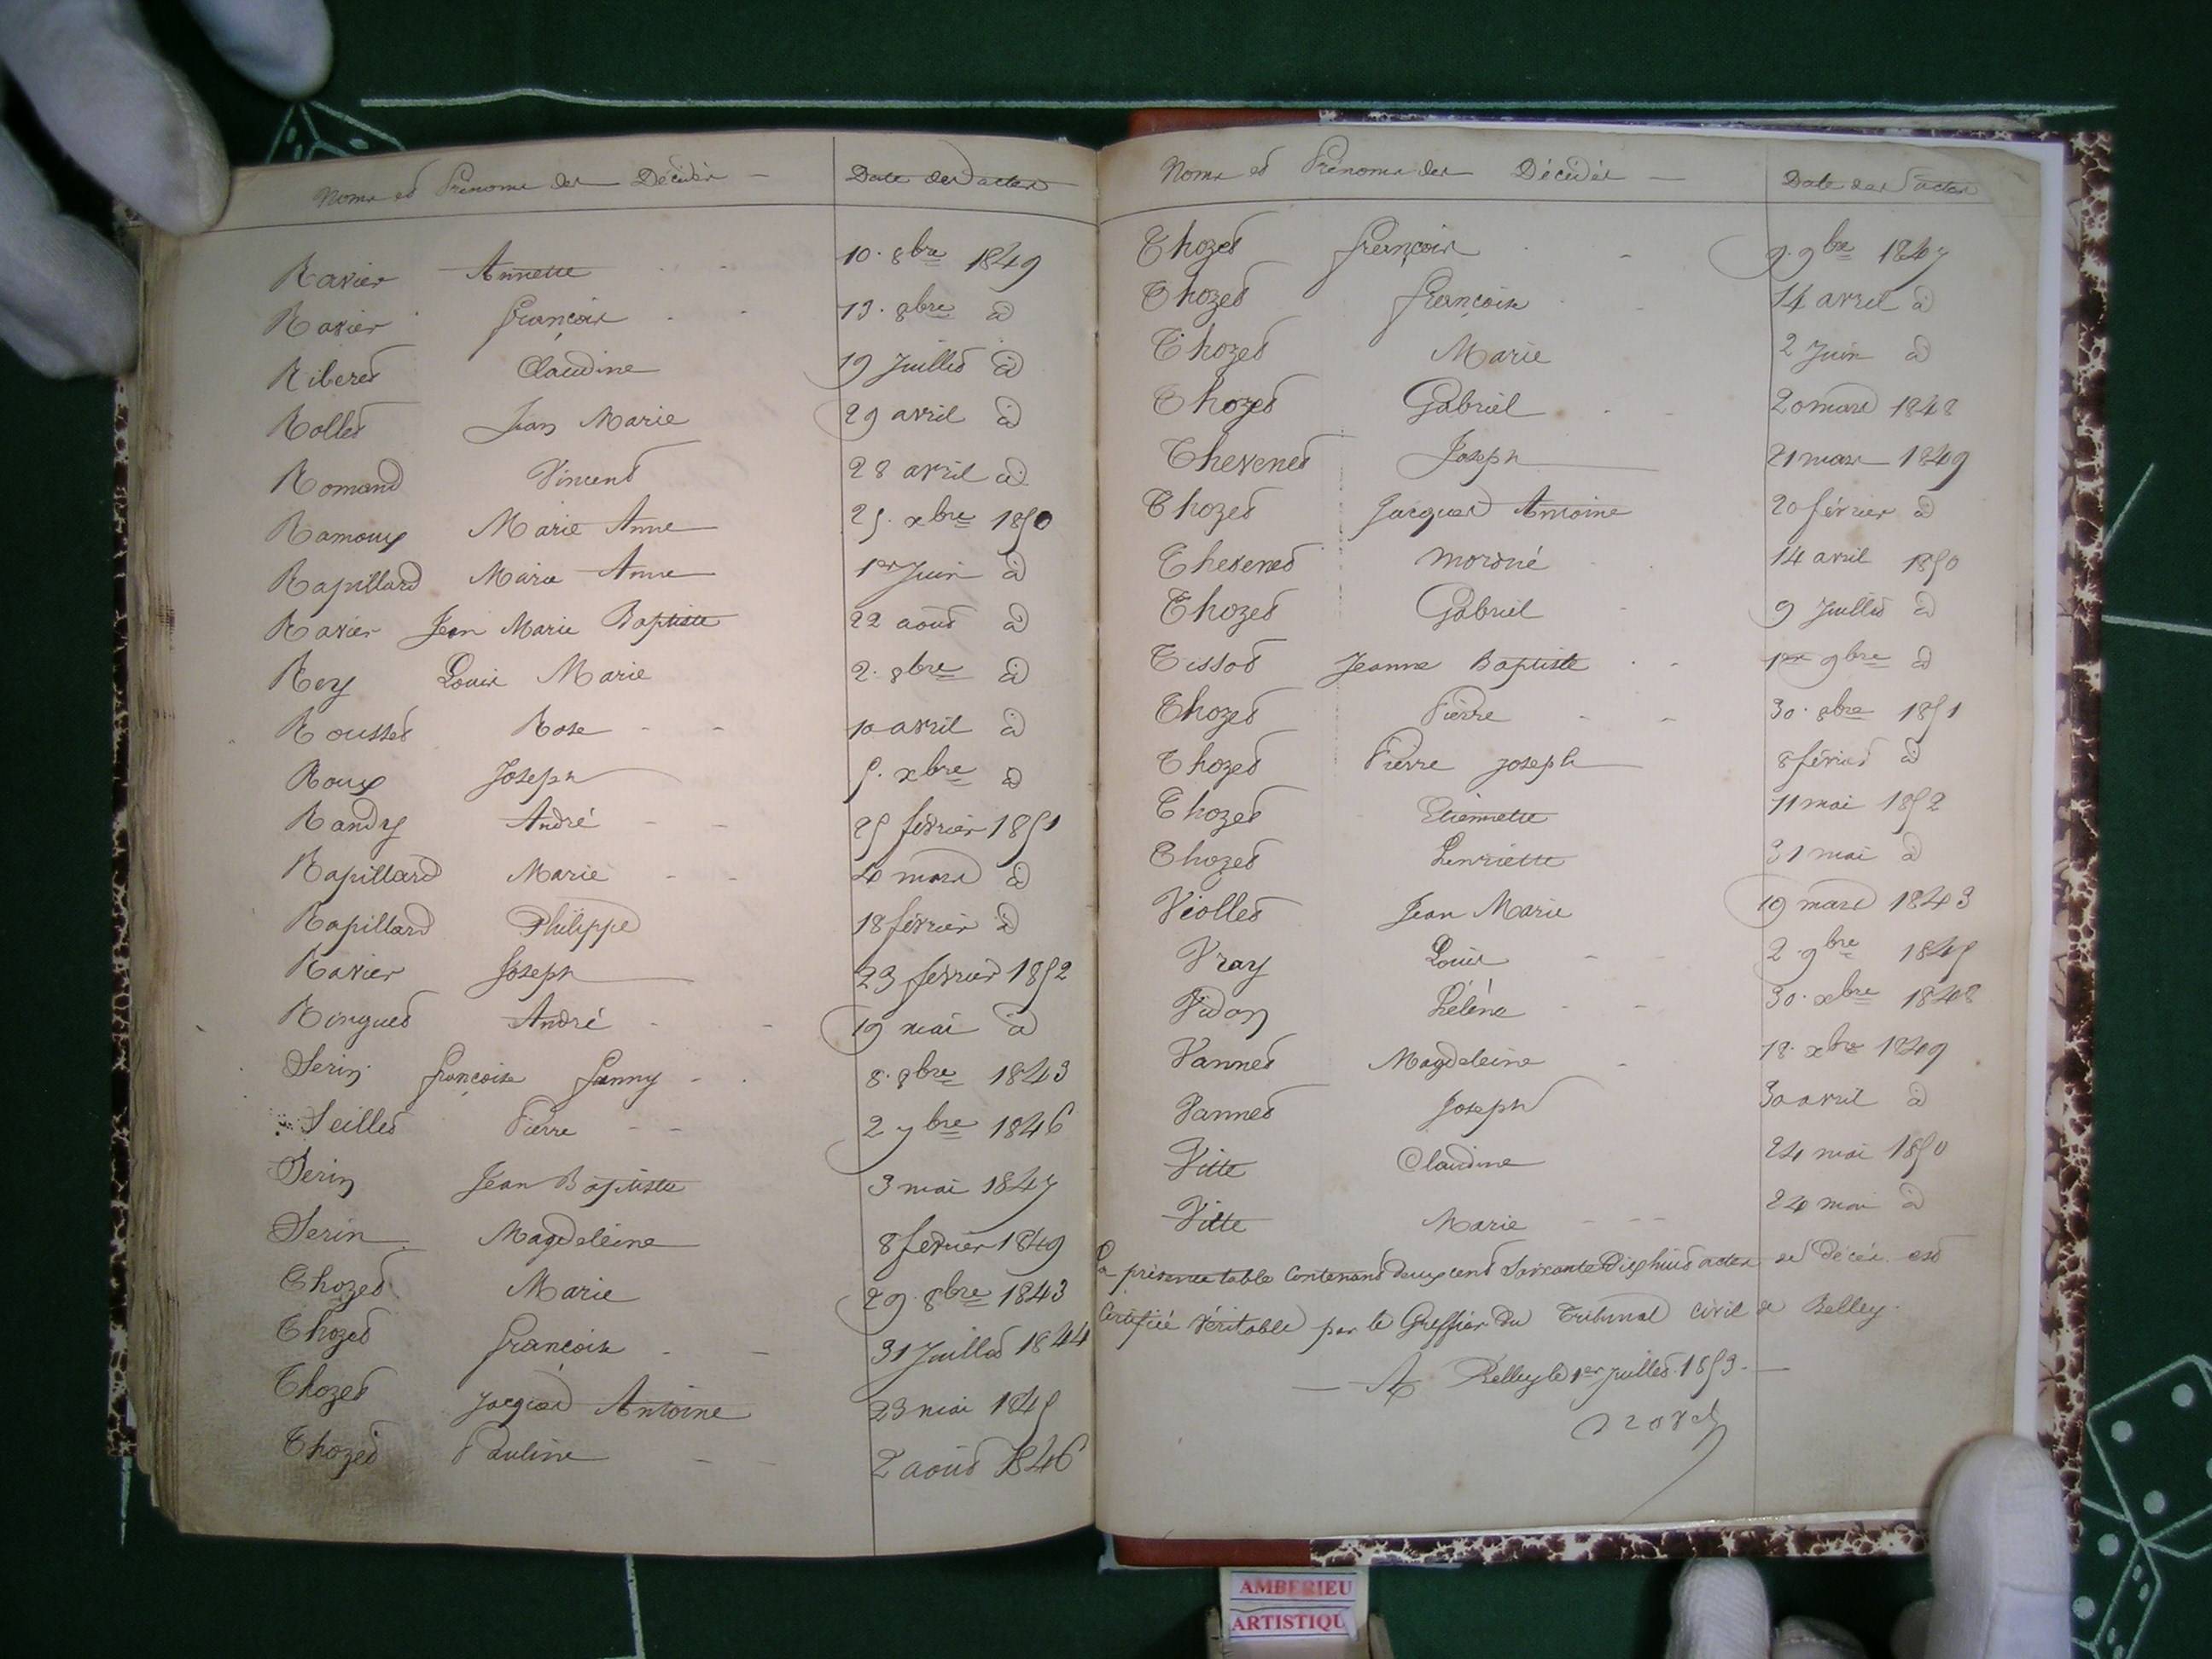 Noms et Prénoms des Décédés — Date des actes
Ravier Annette 10. 8bre 1849
Ravier françois 13. 8bre id
Riberet Claudine 19 Juillet id
Rollet Jean Marie 29 avril id
Romand Vincent 28 avril id
Ramoux Marie Anne 25. xbre 1850
Rapillard Marie Anne 1er Juin id
Ravier Jean Marie Baptiste 22 aout id
Rey Louis Marie 2. 8bre id
Rousset Rose 10 avril id
Roux Joseph 5. xbre id
Randy André 25 février 1851
Rapillard Marie 4 mars id
Rapillard Philippe 18 février id
Ravier Joseph 23 fevrier 1852
Ringuet André 19 mai id
Serin françoise fanny 8. 8bre 1843
Seillet Pierre 2 7bre 1846
Serin Jean Baptiste 3 mai 1847
Serin Magdeleine 8 fevrier 1849
Thozet Marie 29. 8bre 1843
Thozet françois 31 Juillet 1844
Thozet Jacques Antoine 23 mai 1845
Thozet Pauline 2 aout 1846
Noms et Prénoms des Décédés — Date des actes
Thozet françois 9. 9bre 1847
Thozet françois 14 avril id
Thozet Marie 2 Juin id
Thozet Gabriel 20 mars 1848
Thevenet Joseph 21 mars 1849
Thozet Jacques Antoine 20 février id
Thevenet mort né 14 avril 1850
Thozet Gabriel 9 Juillet id
Tissot Jeanne Baptiste 1er 9bre id
Thozet Pierre 30. 8bre 1851
Thozet Pierre Joseph 8 février id
Thozet Etiennette 11 mai 1852
Thozet henriette 31 mai id
Viollet Jean Marie 19 mars 1843
Vray Louis 2. 9bre 1845
Vidon hélène 30. xbre 1848
Vannet Magdeleine 18. xbre 1849
Vannet Joseph 30 avril id
Vitte Claudine 24 mai 1850
Vitte Marie 24 mai id
La présente table contenant deux cent soixante Dix huit actes de décès est
Certifiée véritable par le Greffier du Tribunal civil de Belley.
— A Belley le 1er juillet 1853. —
AMBERIEU
ARTISTIQU